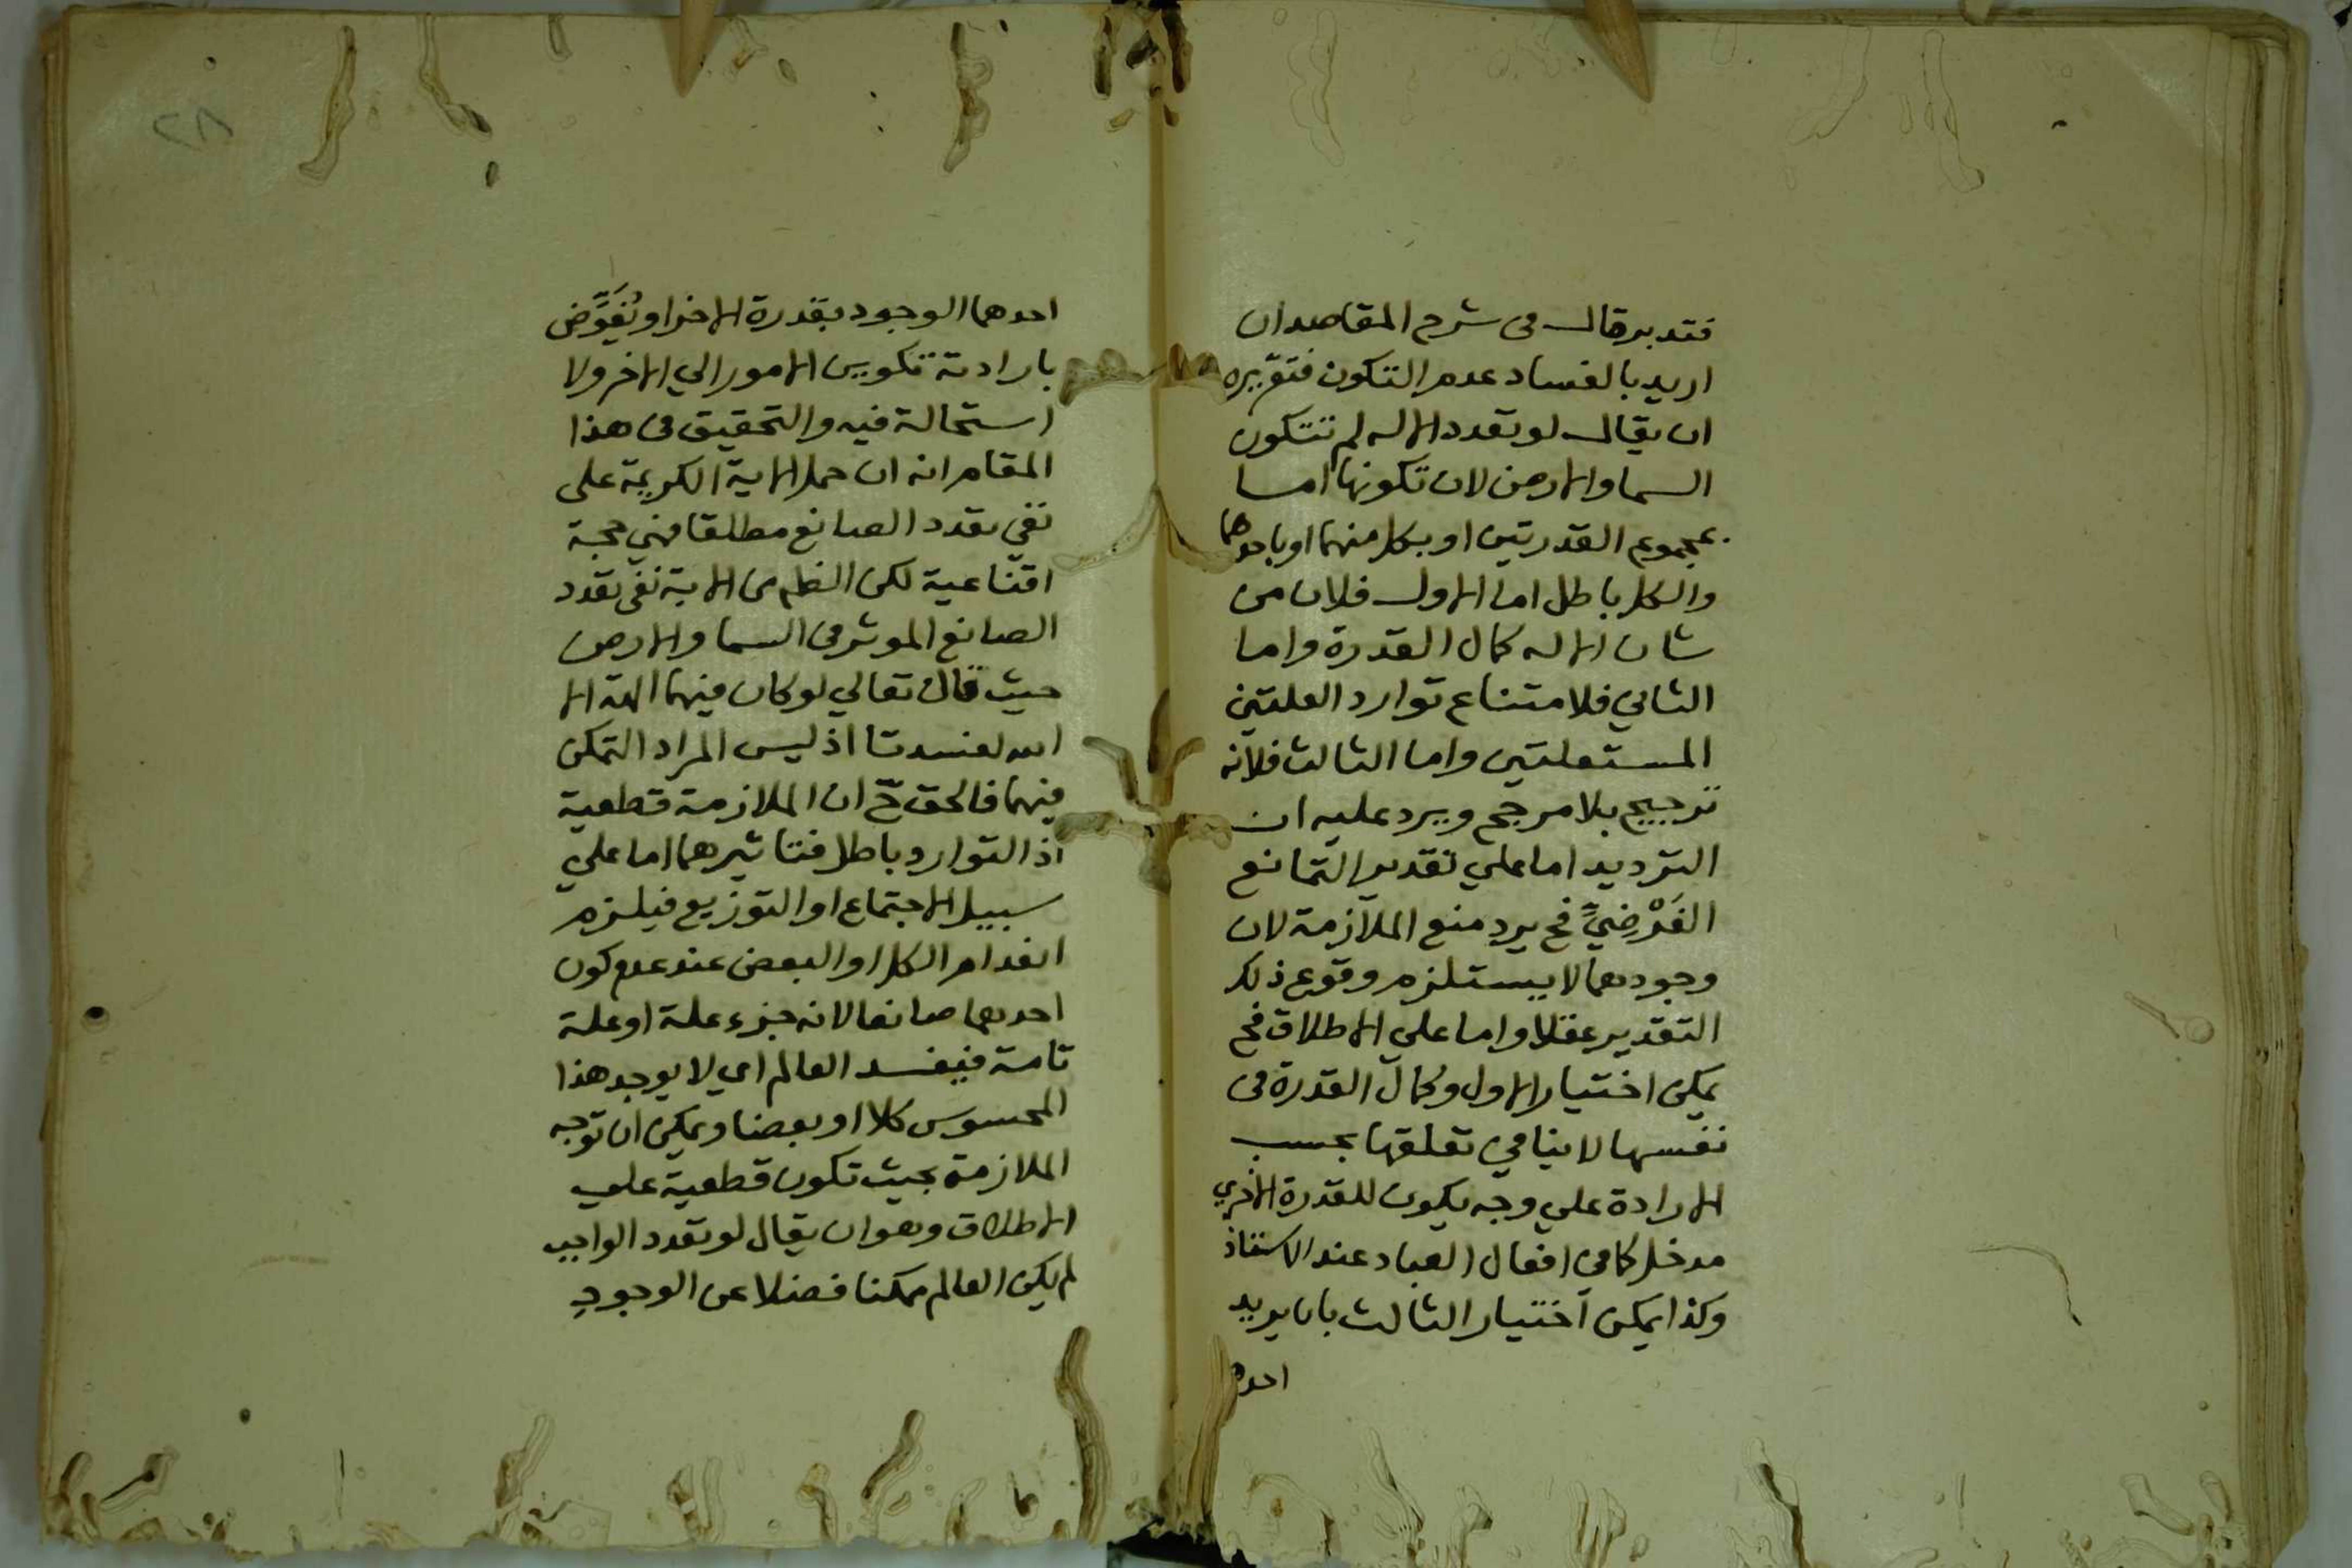 فتدبر قال في شرح المقاصد ان
اريد بالفساد عدم التكون فتقريره
ان يقال لو تعدد الاله لم تتكون
السما والارض لان تكونها اما
بمجموع القدرتين او بكل منهما او باحدهما
والكل باطل اما الاول فلان من
شان الاله كمال القدرة واما
الثاني فلامتناع توارد العلتين
المستقلتين واما الثالث فلانه
ترجيح بلا مرجح ويرد عليه ان
الترديد اما علي تقدير التمانع
الفَرْضِيّ فح يرد منع الملازمة لان
وجودهما لا يستلزم وقوع ذلك
التقدير عقلا واما علي الاطلاق فح
يمكن اختيار الاول وكمال القدرة في
نفسها لا ينافي تعلقها بحسب
الارادة علي وجه يكون للقدرة الاخري
مدخل كما في افعال العباد عند الاستاذ
وكذا يمكن اختيار الثالث بان يريد
احدهما
٢٨
احدهما الوجود بقدرة الاخر او يُفَوِّض
بارادته تكوين الامور الي الاخر ولا
استحالة فيه والتحقيق في هذا
المقام انه ان حمل الاية الكريمة على
نفي تعدد الصانع مطلقا فهي حجة
اقناعية لكن الظاهر من الاية نفي تعدد
الصانع الموثر في السما والارض
حيث قال تعالي لو كان فيهما الهة الا
الله لفسدتا اذ ليس المراد التمكن
فيهما فالحق ح ان الملازمة قطعية
اذ التوارد باطل فتاثيرهما اما علي
سبيل الاجتماع او التوزيع فيلزم
انعدام الكل او البعض عند عدم كون
احدهما صانعا لانه جزء علة او علة
تامة فيفسد العالم اي لا يوجد هذا
المحسوس كلا او بعضا ويمكن ان توجه
الملازمة بحيث تكون قطعية علي
الاطلاق وهو ان يقال لو تعدد الواجب
لم يكن العالم ممكنا فضلا عن الوجود